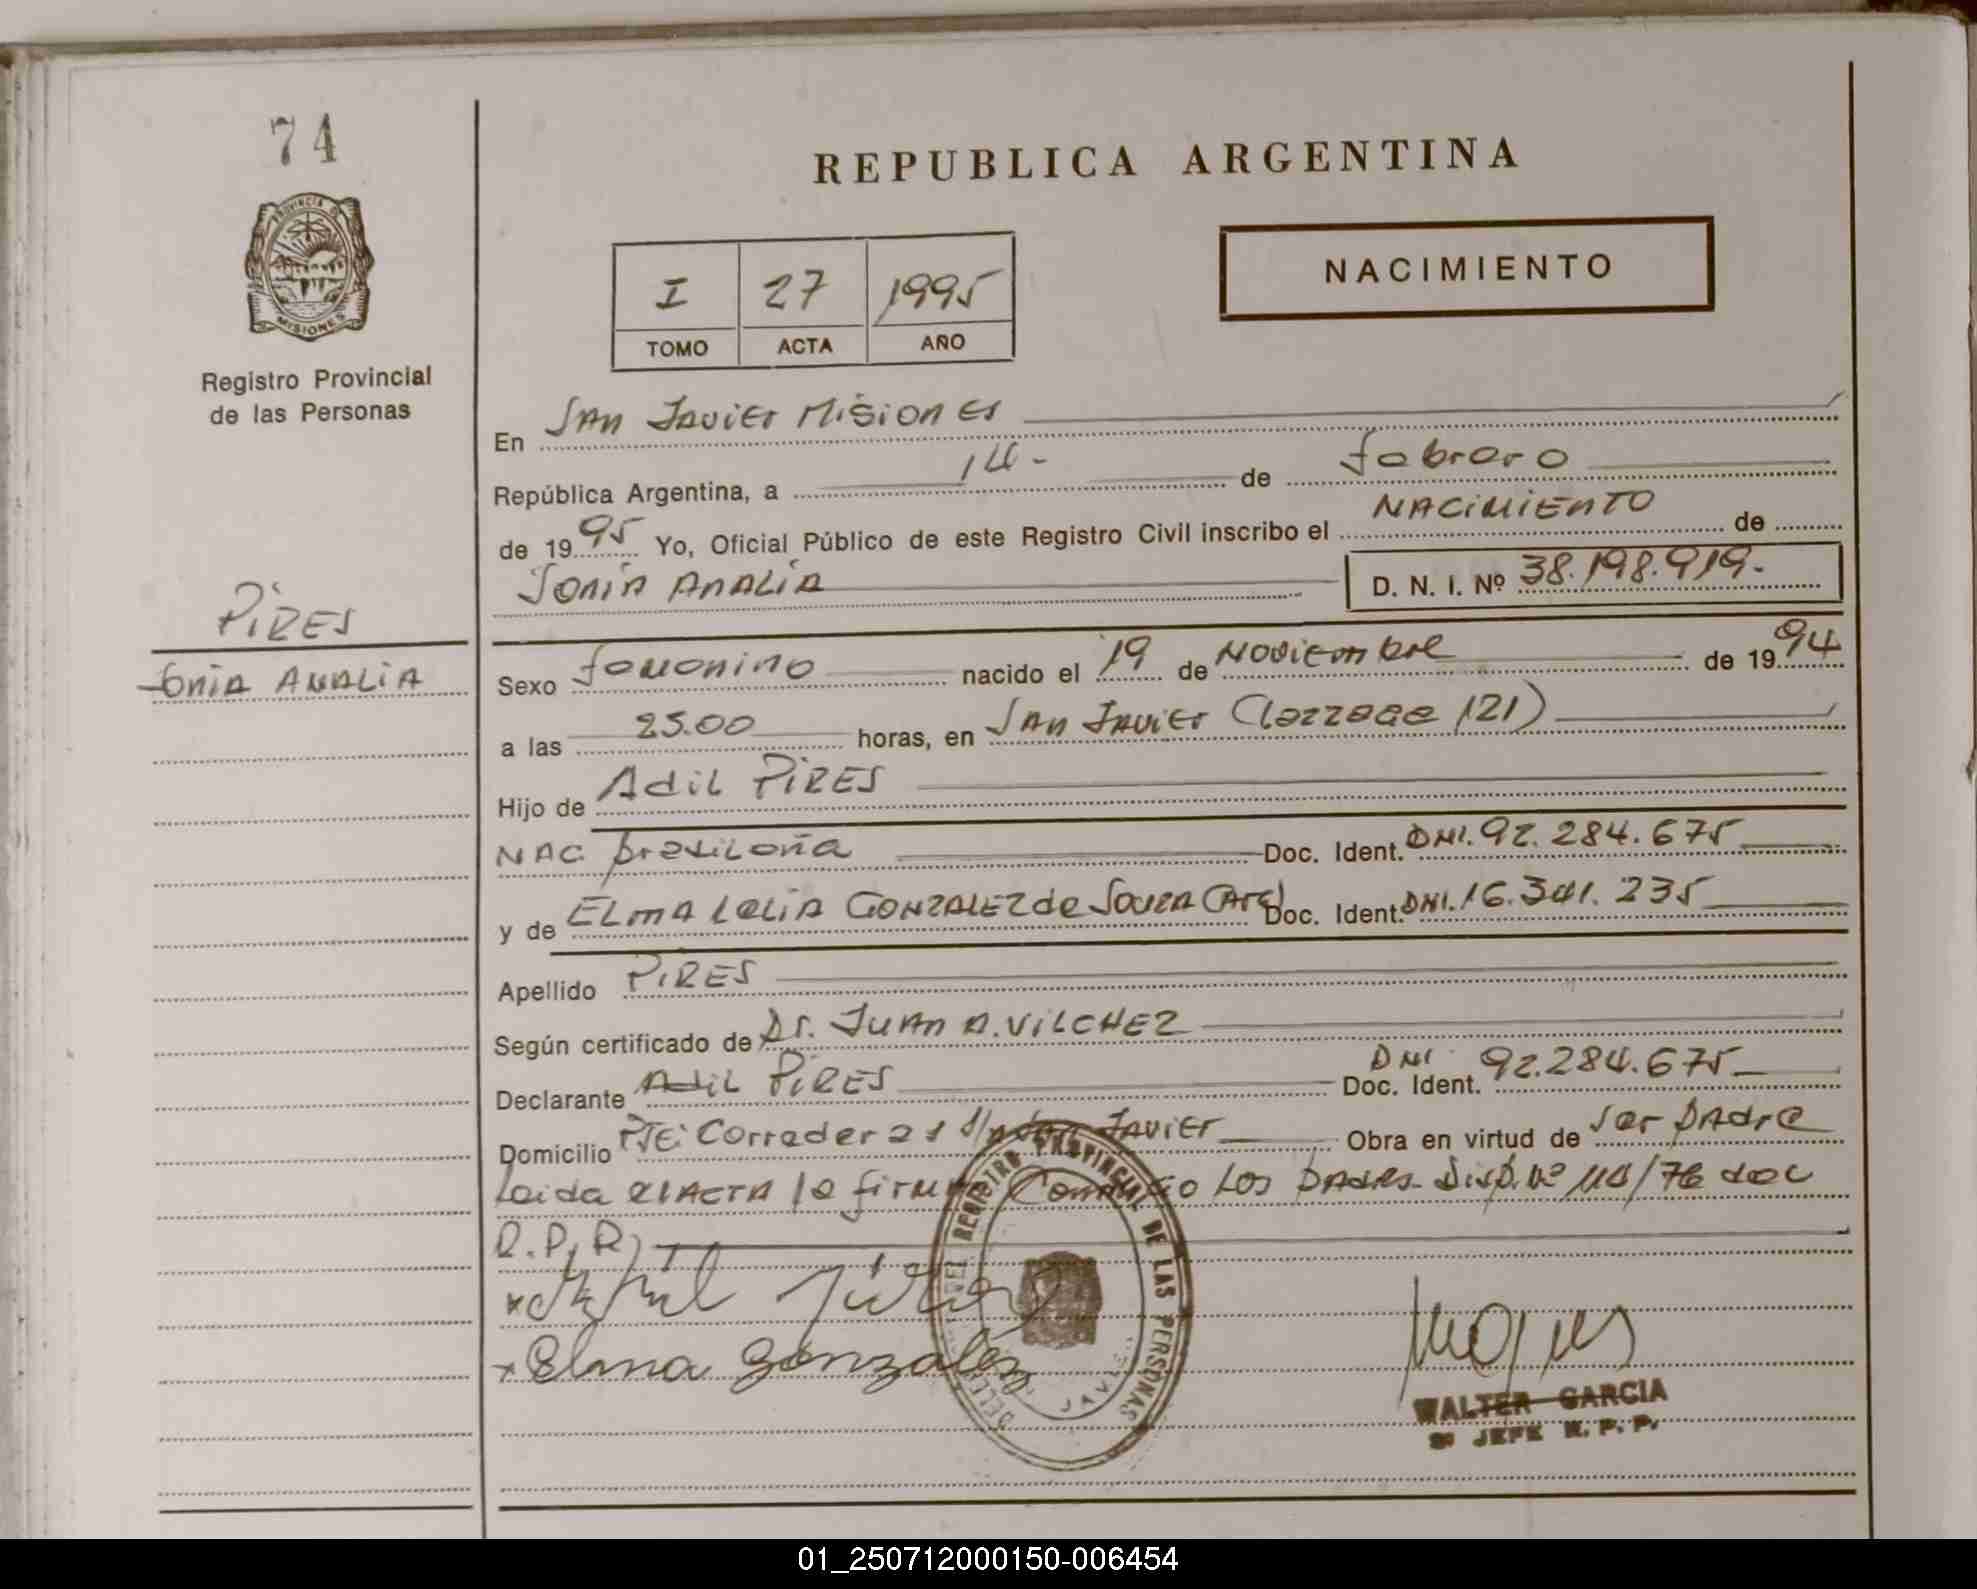 74
REPUBLICA ARGENTINA
PROVINCIA DE
MISIONES
I 27 1995
TOMO ACTA AÑO
NACIMIENTO
Registro Provincial
de las Personas
En San Javier Misiones
República Argentina, a 14- de febrero
de 1995 Yo, Oficial Público de este Registro Civil inscribo el NACIMIENTO de
Sonia Analia D. N. I. Nº 38.198.919.-
PIRES
Sonia Analia
Sexo femenino nacido el 19 de Noviembre de 1994
a las horas, en San Javier 121)
Hijo de Adil PIRES
NAC brasileña Doc. Ident. DNI. 92.284.675
y de ELMA Lelia GONZALEZ de Souza (Arg) Doc. Ident. DNI. 16.341.235
Apellido PIRES
Según certificado de Dr. Juan A. VILCHEZ
Declarante Adil PIRES Doc. Ident. DNI 92.284.675
Domicilio Pje: S/n San Javier Obra en virtud de ser padre
Leida el ACTA la firman Conmigo Los padres Disp. Nº /76 del
R.P.P.
Elma Gonzalez
REGISTRO PROVINCIAL DE LAS PERSONAS
JAVIER
WALTER GARCIA
2º JEFE R. P. P.
01_250712000150-006454